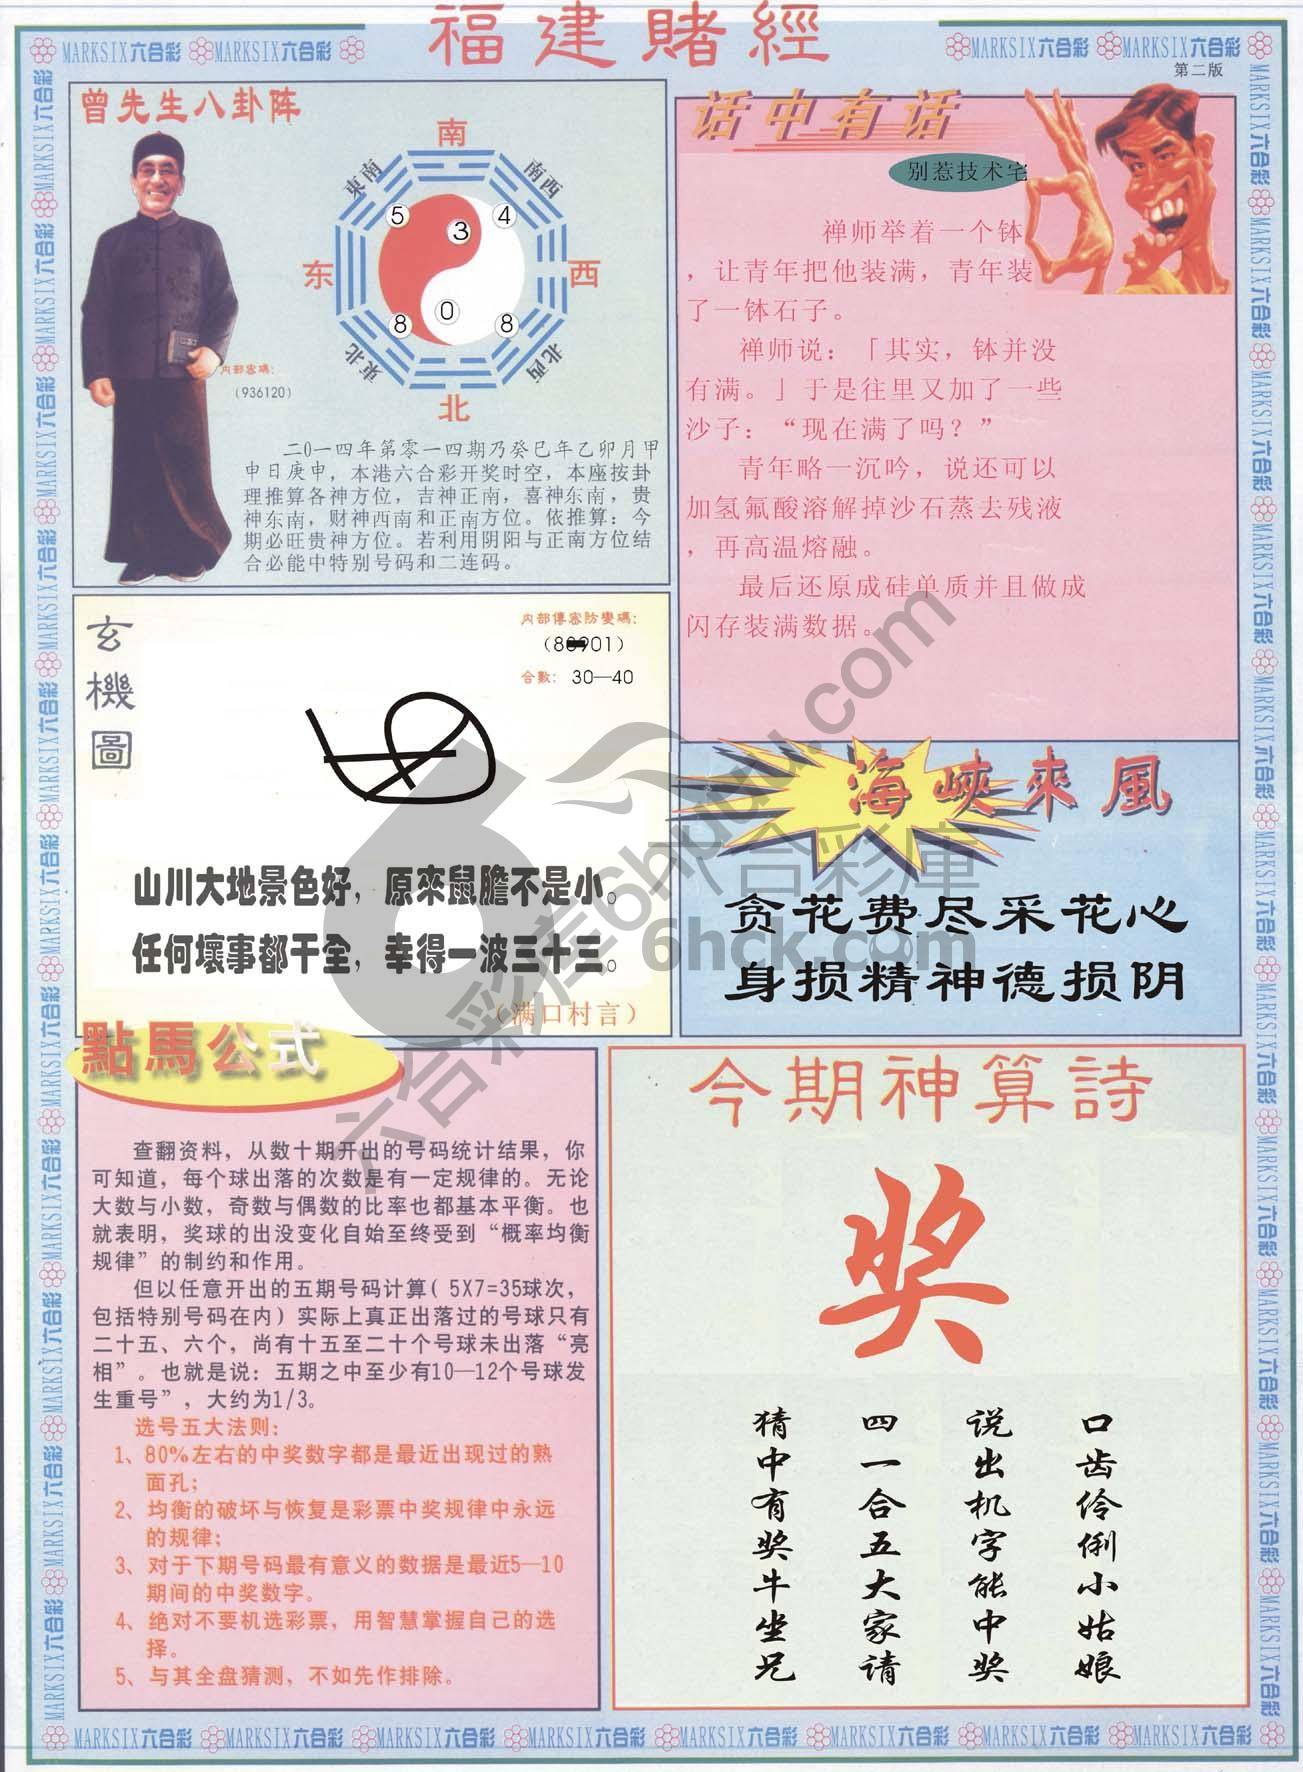 福建賭經
MARKSIX六合彩 MARKSIX六合彩
MARKSIX六合彩 MARKSIX六合彩
第二版
曾先生八卦阵
南
東南
南西
5
3
4
东
西
8
0
8
東北
北西
北
内部密碼:
(936120)
二0一四年第零一四期乃癸巳年乙卯月甲
申日庚申，本港六合彩开奖时空，本座按卦
理推算各神方位，吉神正南，喜神东南，贵
神东南，财神西南和正南方位。依推算：今
期必旺贵神方位。若利用阴阳与正南方位结
合必能中特别号码和二连码。
话中有话
别惹技术宅
禅师举着一个钵
，让青年把他装满，青年装
了一钵石子。
禅师说：「其实，钵并没
有满。」于是往里又加了一些
沙子：“现在满了吗？”
青年略一沉吟，说还可以
加氢氟酸溶解掉沙石蒸去残液
，再高温熔融。
最后还原成硅单质并且做成
闪存装满数据。
玄機圖
内部傳密防變碼:
901)
合數: 30—40
山川大地景色好，原來鼠膽不是小。
任何壞事都干全，幸得一波三十三。
（满口村言）
海峽來風
贪花费尽采花心
身损精神德损阴
六合彩庫
6hck.com
六合彩库6hbudu.com
點馬公式
查翻资料，从数十期开出的号码统计结果，你
可知道，每个球出落的次数是有一定规律的。无论
大数与小数，奇数与偶数的比率也都基本平衡。也
就表明，奖球的出没变化自始至终受到“概率均衡
规律”的制约和作用。
但以任意开出的五期号码计算( 5X7=35球次，
包括特别号码在内）实际上真正出落过的号球只有
二十五、六个，尚有十五至二十个号球未出落“亮
相”。也就是说：五期之中至少有10—12个号球发
生重号”，大约为1/3。
选号五大法则：
1、80%左右的中奖数字都是最近出现过的熟
面孔；
2、均衡的破坏与恢复是彩票中奖规律中永远
的规律；
3、对于下期号码最有意义的数据是最近5—10
期间的中奖数字。
4、绝对不要机选彩票，用智慧掌握自己的选
择。
5、与其全盘猜测，不如先作排除。
今期神算詩
奖
口齿伶俐小姑娘
说出机字能中奖
四一合五大家请
猜中有奖牛坐兄
MARKSIX六合彩 MARKSIX六合彩 MARKSIX六合彩 MARKSIX六合彩 MARKSIX六合彩 MARKSIX六合彩 MARKSIX六合彩 MARKSIX六合彩